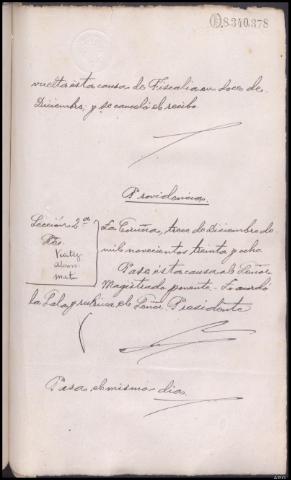 8.340.378
vuelta esta causa de Fiscalia en doce de
Diciembre; y se canceló el recibo
Providencia
Sección 2ª
La Coruña, trece de Diciembre de
mil novecientos treinta y ocho
Pase esta causa al Señor
Magistrado ponente. Lo acordó
la Sala, y rubrica el Señor Presidente
Pasa el mismo dia.